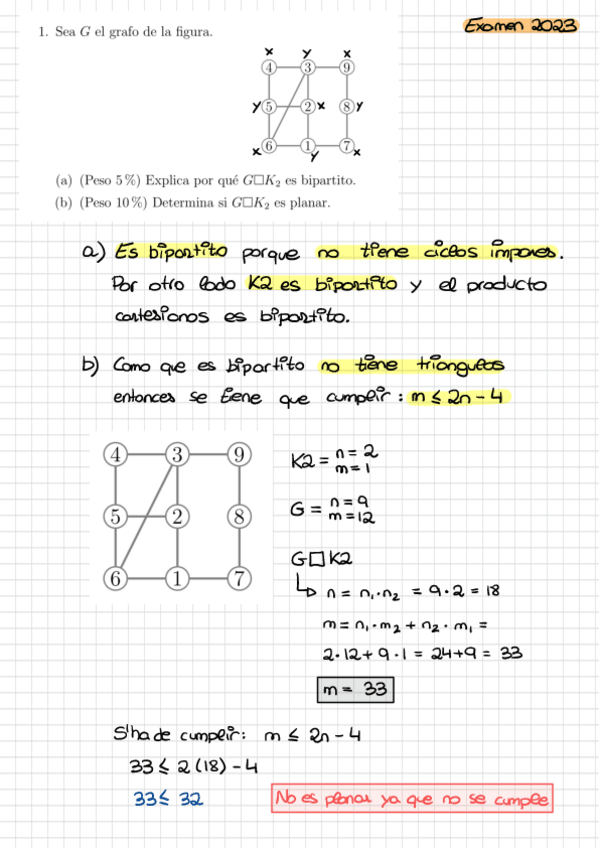 Examen 2023
1. Sea G el grafo de la figura.
x y x
4 3 9
y 5 2 x 8 y
x 6 1 7 x
y
(a) (Peso 5 %) Explica por qué G□K₂ es bipartito.
(b) (Peso 10 %) Determina si G□K₂ es planar.
a) Es bipartito porque no tiene ciclos impares.
Por otro lado K2 es bipartito y el producto
cartesianos es bipartito.
b) Como que es bipartito no tiene triangulos
entonces se tiene que cumplir : m ≤ 2n - 4
4 3 9
5 2 8
6 1 7
K2 = n = 2
m = 1
G = n = 9
m = 12
G□K2
↳ n = n₁·n₂ = 9·2 = 18
m = n₁·m₂ + n₂·m₁ =
2·12 + 9·1 = 24+9 = 33
m = 33
S'ha de cumplir: m ≤ 2n - 4
33 ≤ 2(18) - 4
33 ≤ 32
No es planar ya que no se cumple